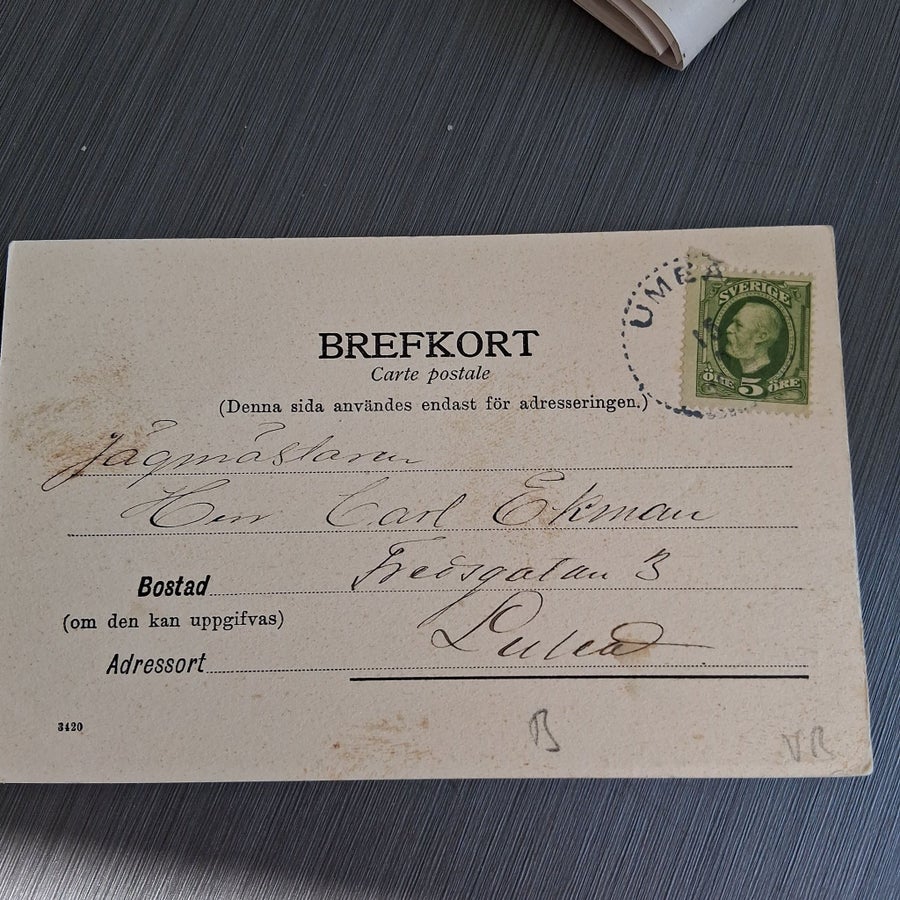 UMEÅ
SVERIGE
ÖRE 5 ÖRE
BREFKORT
Carte postale
(Denna sida användes endast för adresseringen.)
Jägmästaren
Herr Carl Ekman
Bostad Fredsgatan 3
(om den kan uppgifvas)
Adressort Luleå
3420
B
VB